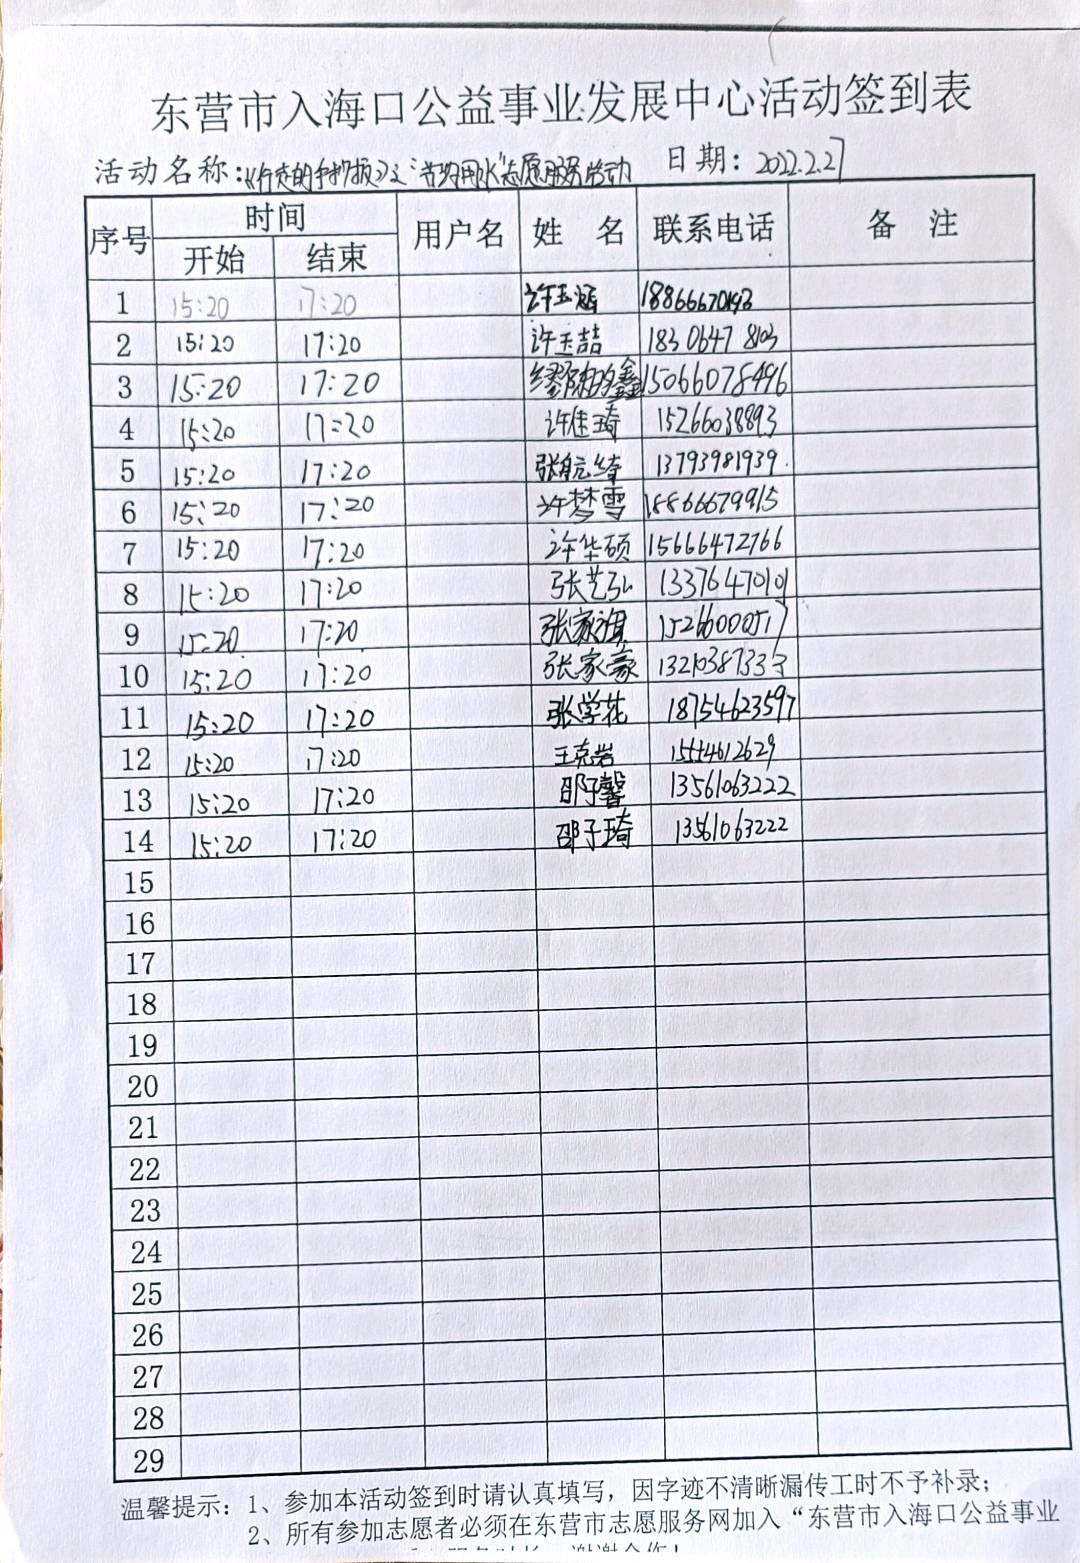 东营市入海口公益事业发展中心活动签到表
活动名称：《行走的手抄报》之"节约用水"志愿服务活动 日期：2022.2.27
序号 时间 用户名 姓 名 联系电话 备 注
开始 结束
1 15:20 17:20 许玉涵 18866670192
2 15:20 17:20 许玉喆 183 0647 8103
3 15:20 17:20 15066078496
4 15:20 17:20 许佳琦 15266038893
5 15:20 17:20 13793981939
6 15:20 17:20 许梦雪 18866679915
7 15:20 17:20 许华硕 15666472766
8 15:20 17:20 张艺弘
9 15:20 17:20 张家旗
10 15:20 17:20 张家豪
11 15:20 17:20 张学花 18754623597
12 15:20 17:20 王尧岩
13 15:20 17:20 邵子馨 13561063222
14 15:20 17:20 邵子琦 13561063222
15
16
17
18
19
20
21
22
23
24
25
26
27
28
29
温馨提示：1、参加本活动签到时请认真填写，因字迹不清晰漏传工时不予补录；
2、所有参加志愿者必须在东营市志愿服务网加入"东营市入海口公益事业